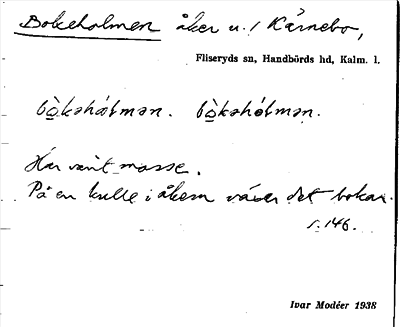 Bokeholmen åker u. / Kärnebo,
Fliseryds sn, Handbörds hd, Kalm. l.
bòkəhólmən. bòkəhólmən.
Har varit mosse.
På en kulle i åkern växer det bokar.
s. 146.
Ivar Modéer 1938